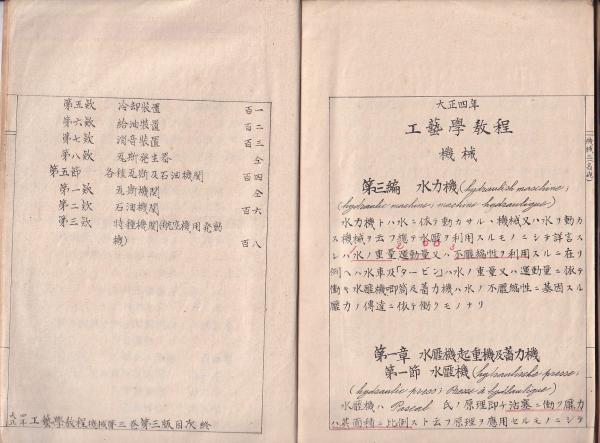 第五欵 冷却裝置 百一
第六欵 給油裝置 百二
第七欵 消音裝置 百三
第八欵 瓦斯発生器 仝
第五節 各種瓦斯及石油機関 百四
第一欵 瓦斯機関 仝
第二欵 石油機関 百六
第三欵 特種機関(航空機用発動
機) 百八
大正四年 工藝學教程機械第三巻第三版目次 終
大正四年
工藝學教程
機械
第三編 水力機(hydraulish maschine;
hydraulic machine; machine hydraulique)
水力機トハ水ニ依テ動カサル、機械又ハ水ヲ動カ
ス機械ヲ云フ總テ水壓ヲ利用スルモノニシテ詳言ス
レハ水ノ重量運動量又ハ不壓縮性ヲ利用スルニ在リ
例ヘハ水車及「タービン」ハ水ノ重量又ハ運動量ニ依テ
働キ水壓機喞筒及蓄力機ハ水ノ不壓縮性ニ基因スル
壓力ノ傳達ニ依テ働クモノナリ
第一章 水壓機起重機及蓄力機
第一節 水壓機(hydraulische presse;
hydraulic press; Presse à hydraulique)
水壓機ハ Pascal 氏ノ原理即チ活塞ニ働ク壓力
ハ其面積ニ比例スト云フ原理ヲ應用セルモノニシテ